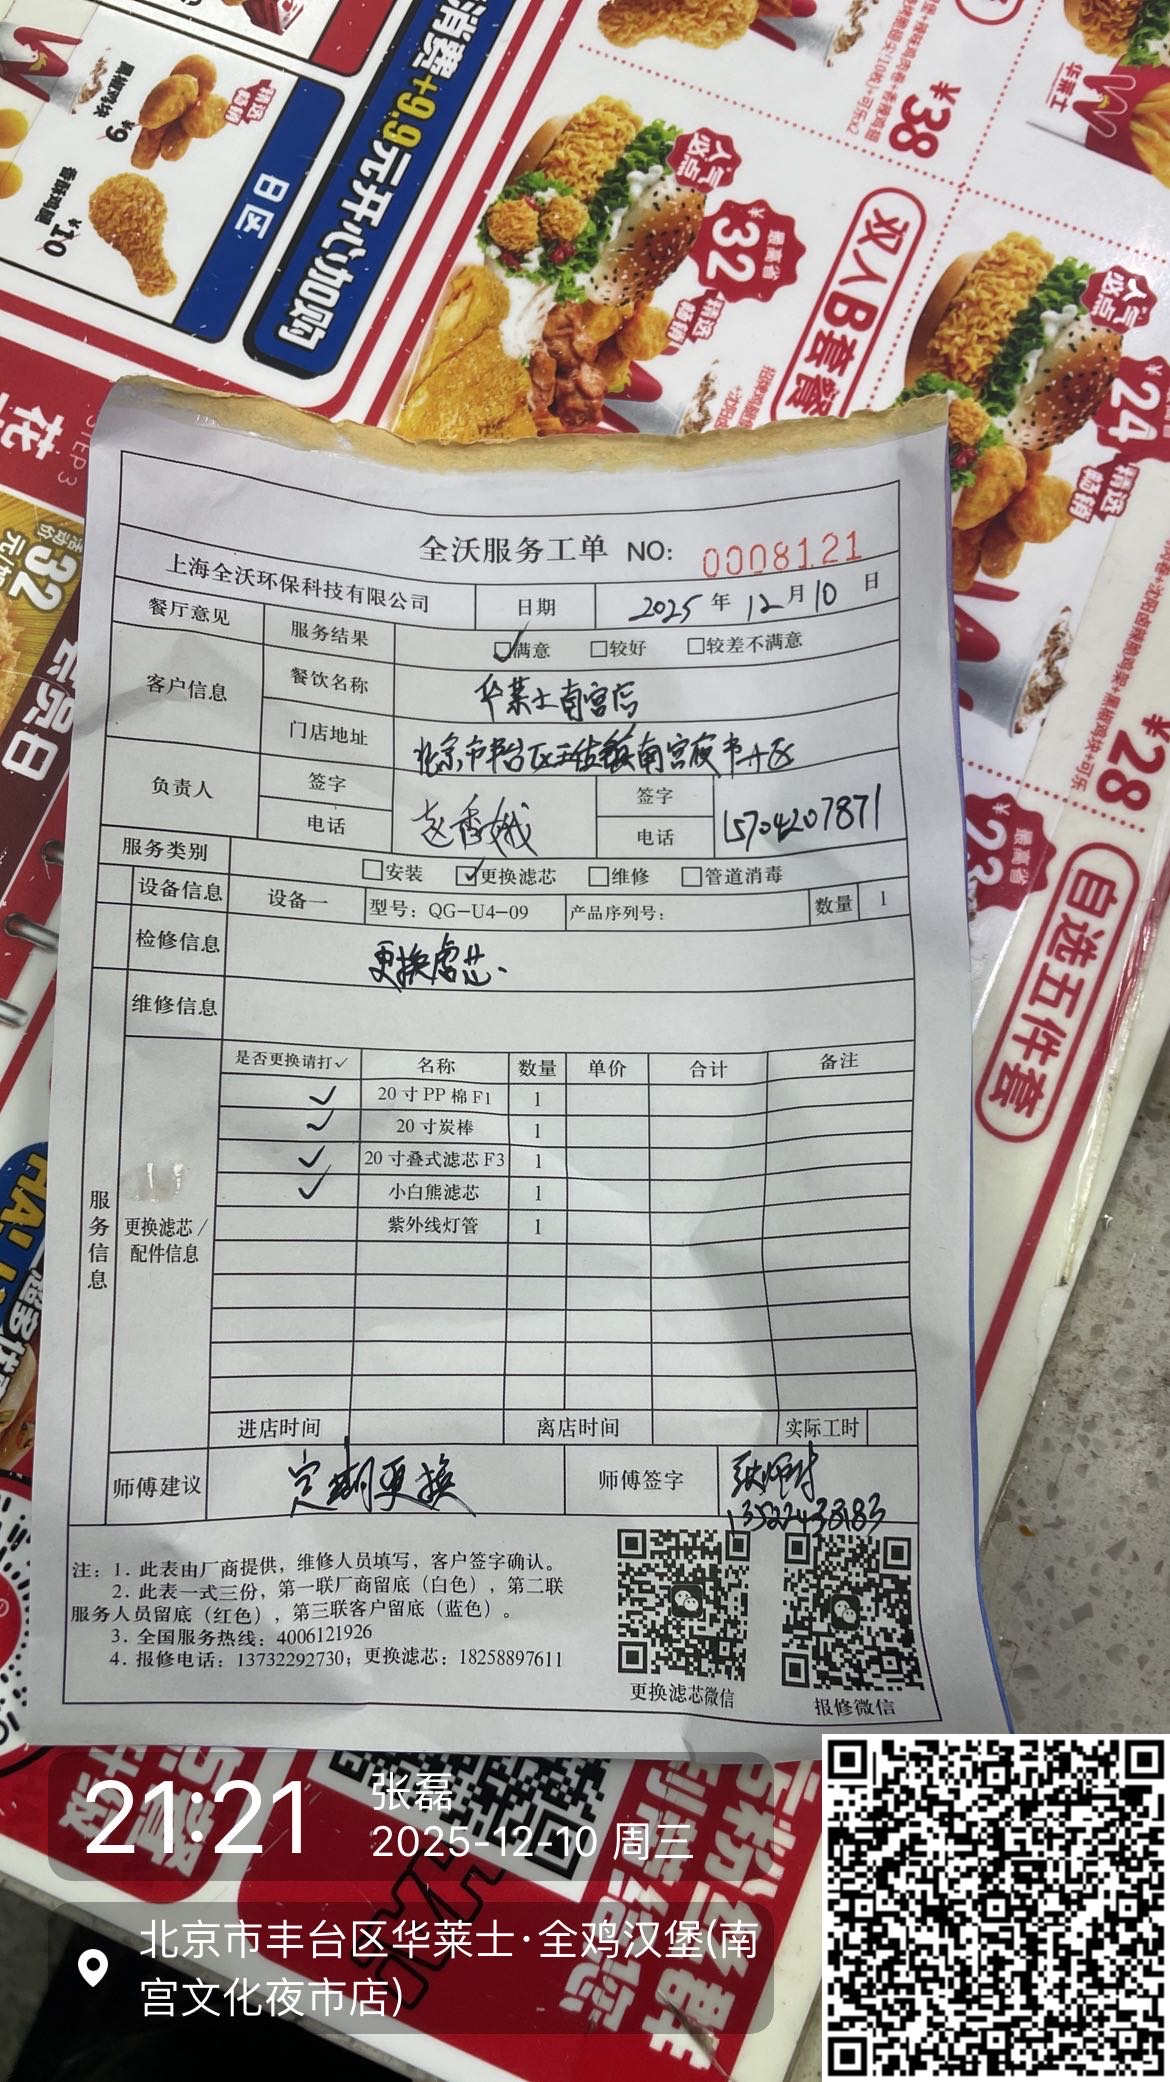 黑椒鸡块
¥9
香酥鸡腿
¥10
日区
消费+9.9元开心加购
人气必点
¥38
最高省
¥32
精选畅销
双人B套餐
华莱士
人气必点
¥24
精选畅销
¥28
最高省
¥23
自选五件套
STEP3
会员日
全沃服务工单 NO: 0008121
上海全沃环保科技有限公司 日期 2025 年 12 月 10 日
餐厅意见 服务结果 ☑满意 □较好 □较差不满意
客户信息 餐饮名称 华莱士南宫店
门店地址 北京市丰台区王佐镇南宫夜市开区
负责人 签字 赵香娥 签字 15704207871
电话 电话
服务类别 □安装 ☑更换滤芯 □维修 □管道消毒
设备信息 设备一 型号：QG-U4-09 产品序列号： 数量 1
检修信息 更换虑芯.
维修信息
服务信息
更换滤芯/配件信息
是否更换请打✓ 名称 数量 单价 合计 备注
✓ 20寸PP棉F1 1
✓ 20寸炭棒 1
✓ 20寸叠式滤芯F3 1
✓ 小白熊滤芯 1
紫外线灯管 1
进店时间 离店时间 实际工时
师傅建议 定期更换 师傅签字
注：1. 此表由厂商提供，维修人员填写，客户签字确认。
2. 此表一式三份，第一联厂商留底（白色），第二联
服务人员留底（红色），第三联客户留底（蓝色）。
3. 全国服务热线：4006121926
4. 报修电话：13732292730；更换滤芯：18258897611
更换滤芯微信
报修微信
21:21
张磊
2025-12-10 周三
北京市丰台区华莱士·全鸡汉堡(南
宫文化夜市店)